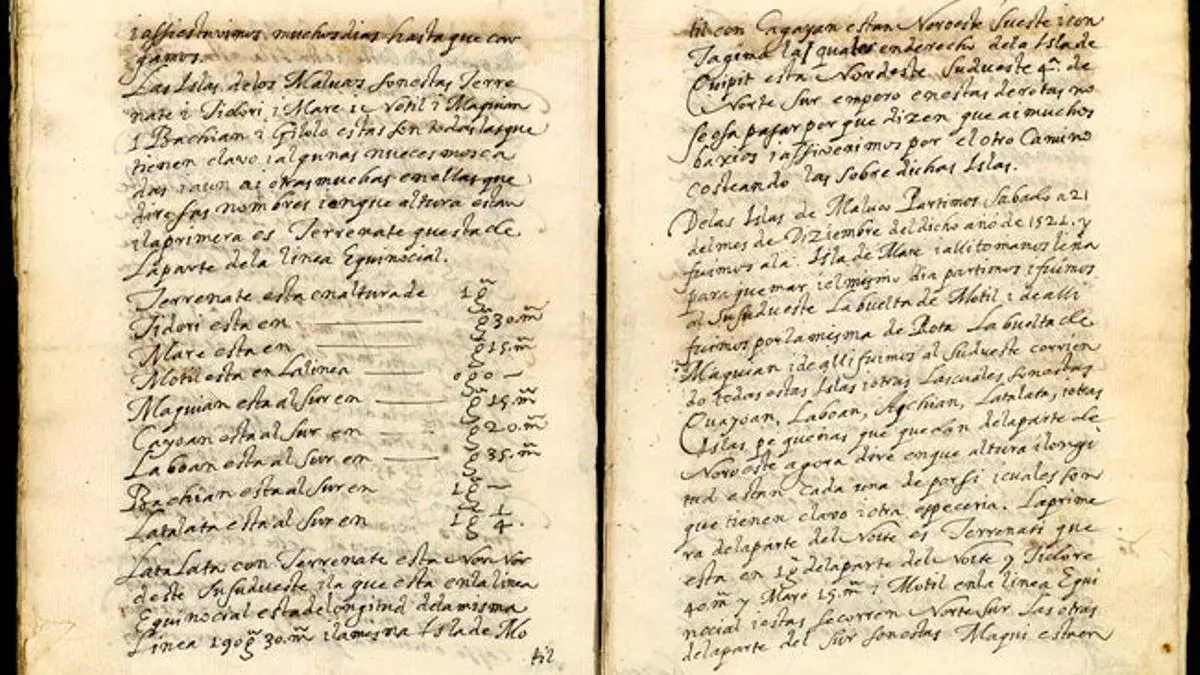 i assi estuvimos muchos dias hasta que car
gamos.
Las Islas de los Malucos son estas Terre
nate i Tidori i Mare i Motil i Maquian
i Bachian i Gilolo estas son todas las que
tienen clavo i algunas nueces mosca
das i aun ai otras muchas en ellas que
dire sus nombres i en que altura estan
i la primera es Terrenate questa de
La parte de la linea Equinocial.
Terrenate esta en altura de 1g̃
Tidori esta en g̃ 30.m̃
Mare esta en g̃ 15.m̃
Motil esta en La linea 0 g̃ 0
Maquian esta al Sur en g̃ 15.m̃
Cayoan esta al Sur en g̃ 20.m̃
Laboan esta al Sur en g̃ 35.m̃
Bachian esta al sur en 1g̃
Latalata esta al Sur en 1g̃ 1/4.
Lata Lata con Terrenate esta Nor Nor
deste Susudueste i la que esta en la linea
Equinocial esta de longitud de la misma
Linea 190g̃ 30.m̃ i la misma Isla de Mo
til
til con Cagayan estan Noroeste Sueste i con
Tagima la qual es en derecho de la Isla de
Quipit esta Nordeste Sudueste 4ª. de
Norte Sur empero en estas derotas no
se osa pasar por que dizen que ai muchos
baxios i assi venimos por el otro Camino
costeando las sobre dichas Islas.
De las Islas de Maluco Partimos Sabado a 21
del mes de Diziembre del dicho año de 1521. y
fuimos a la Isla de Mare i alli tomamos leña
para quemar i el mismo dia partimos i fuimos
al Susudueste La buelta de Motil i de alli
fuimos por la misma de Rota La buelta de
Maquian i de alli fuimos al Sudueste corrien
do todas estas Islas i otras Las cuales son estas
Quayoan, Laboan, Agchian, Latalata, i otras
Islas pequeñas que quedan de la parte de
Noroeste agora diré en que altura i longi
tud estan cada una de por si i cuales son
que tienen clavo i otra especeria. La prime
ra de la parte del Norte es Terrenati que
esta en 1g̃ de la parte del Norte y Tidore
40.m̃ y Mare 15.m̃ i Motil en la linea Equi
nocial i estas se corren Norte Sur. Las otras
de la parte del Sur son estas Maqui esta en